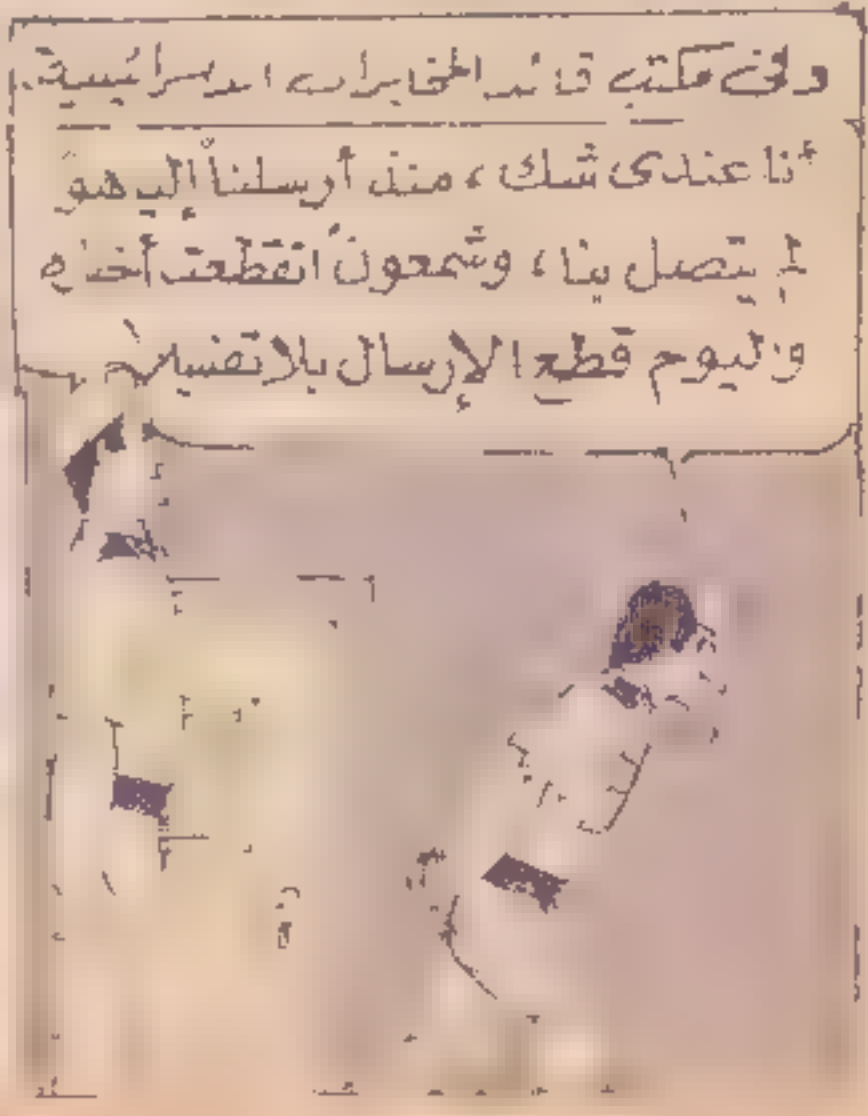 وفى مكتب قائد المخابرات الاسرائيلية..
أنا عندى شك، منذ أرسلنا إليهو
لم يتصل بنا، وشمعون انقطعت أخباره
واليوم قطع الإرسال بلا تفسير